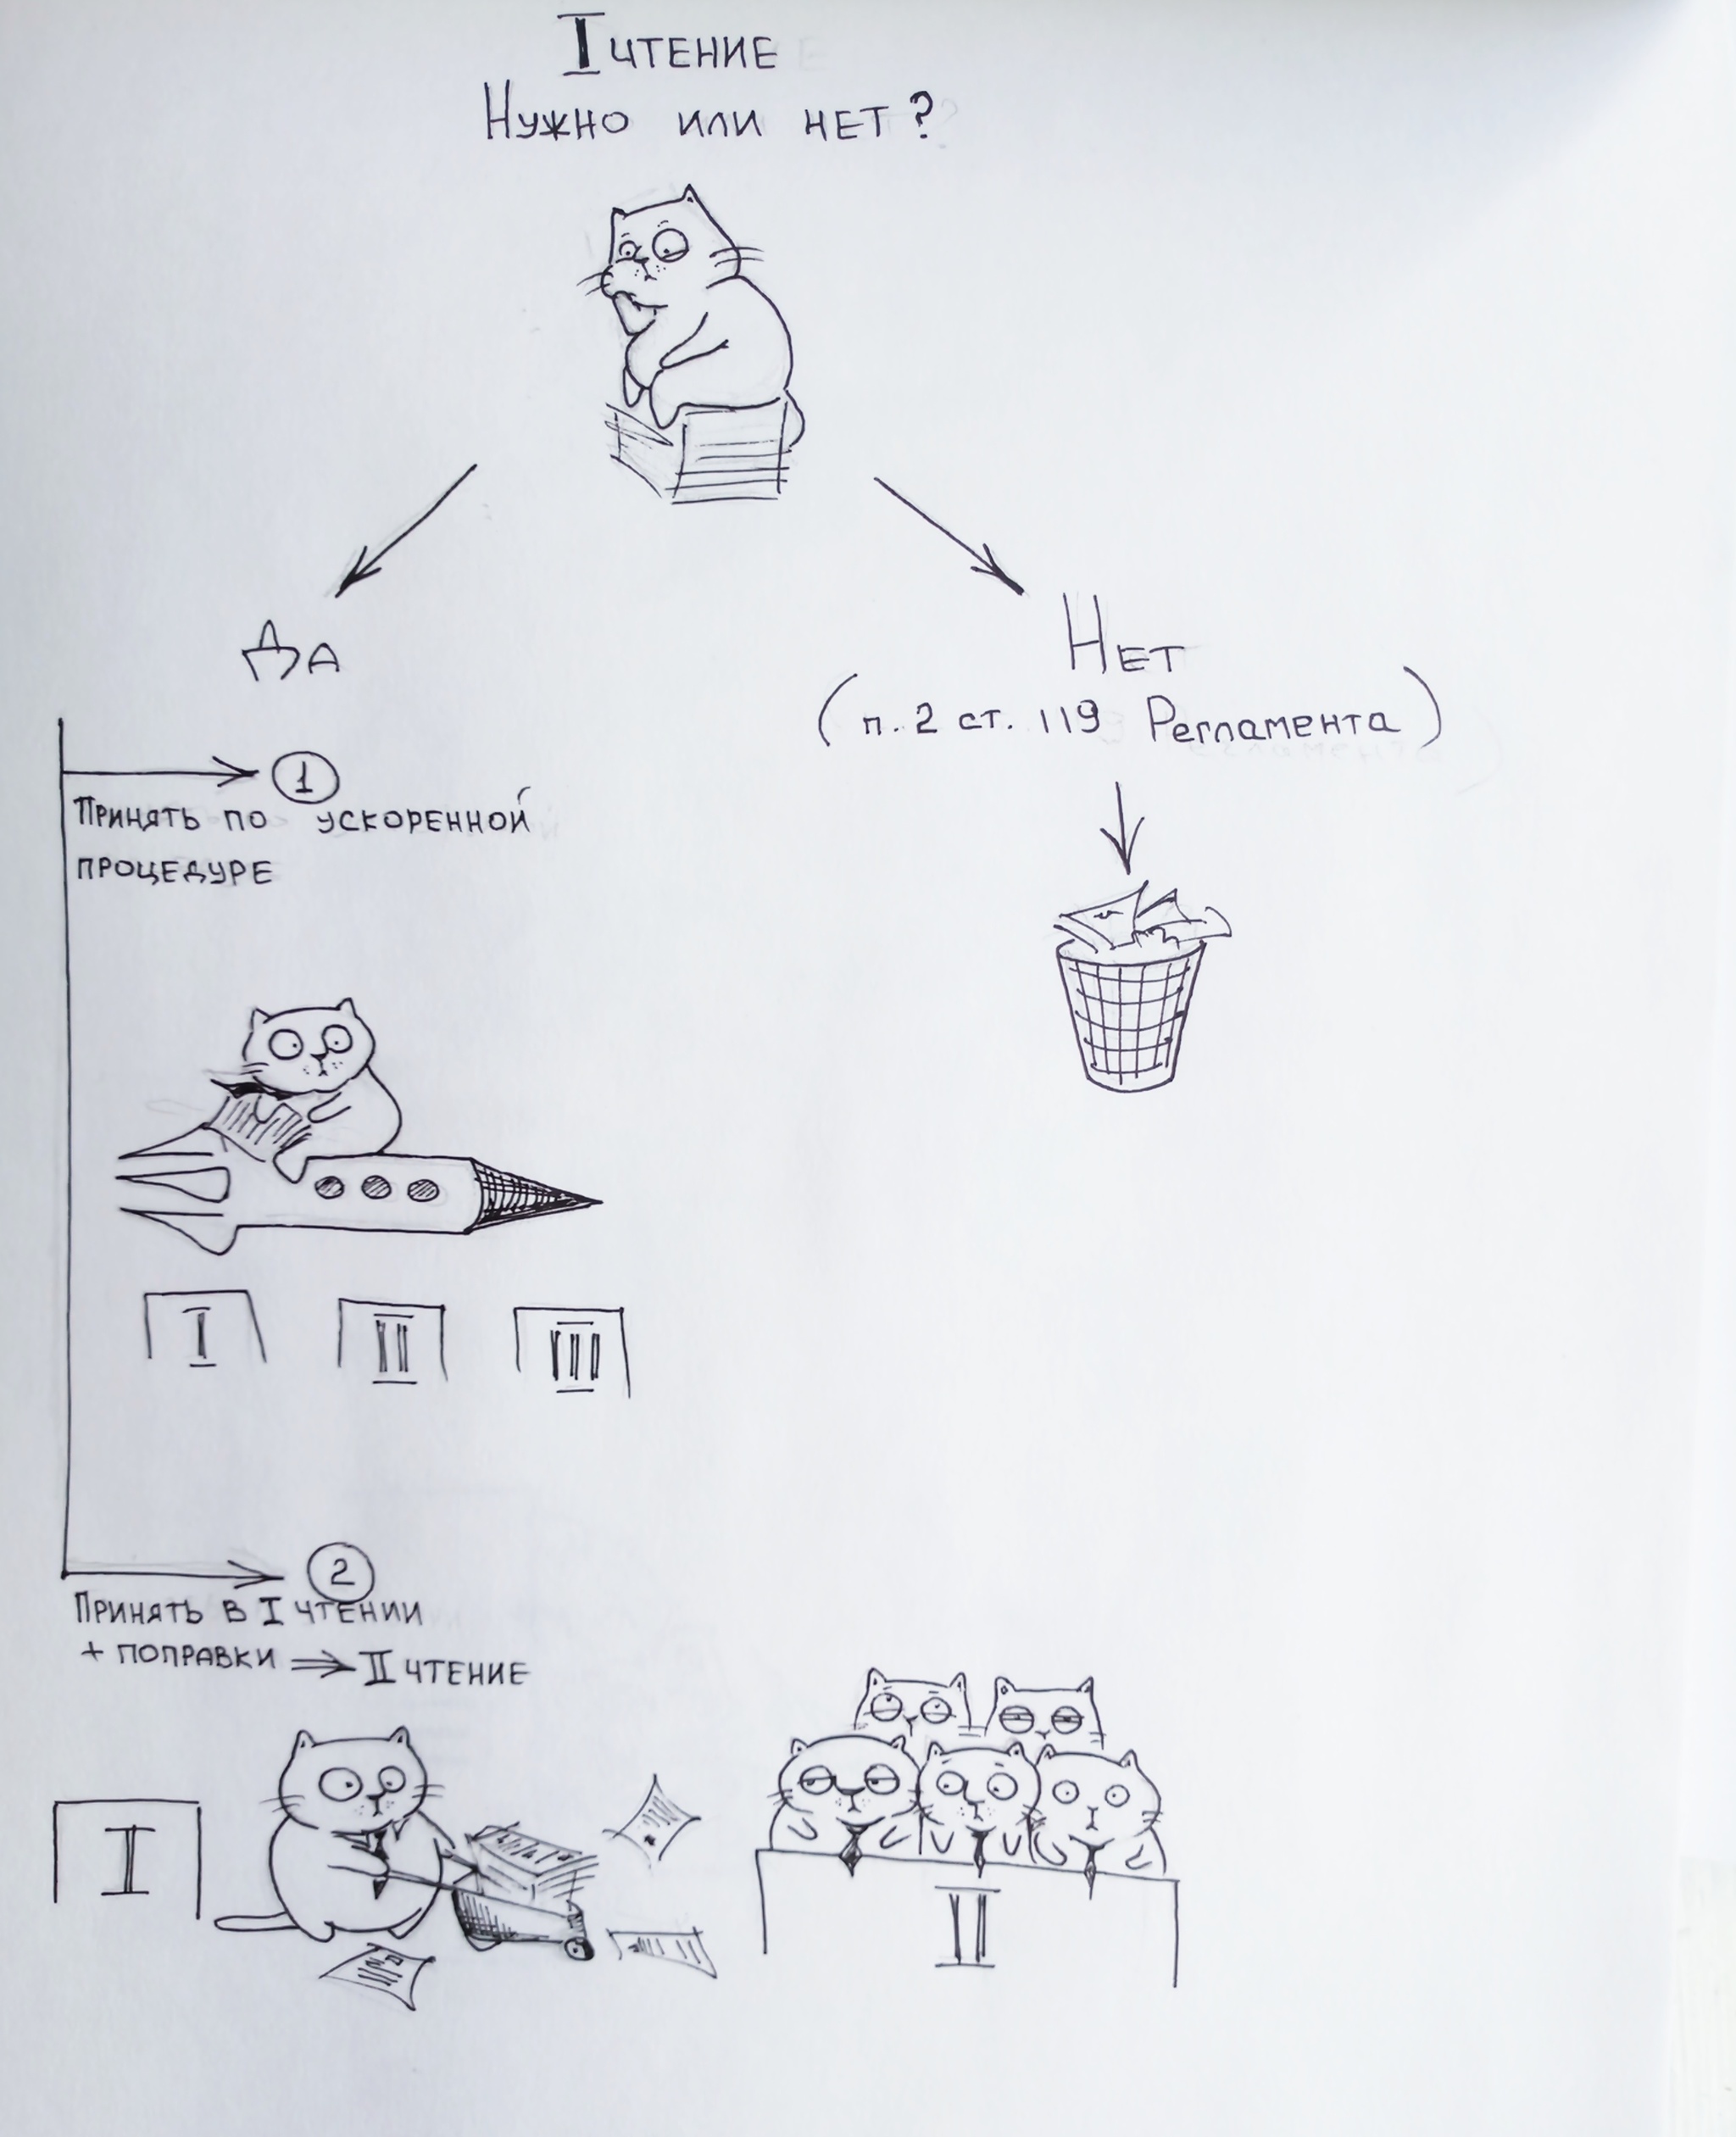 I ЧТЕНИЕ
НУЖНО ИЛИ НЕТ?
ДА
НЕТ
(п. 2 ст. 119 Регламента)
1
ПРИНЯТЬ ПО УСКОРЕННОЙ
ПРОЦЕДУРЕ
I
II
III
2
ПРИНЯТЬ В I ЧТЕНИИ
+ ПОПРАВКИ ⇒ II ЧТЕНИЕ
I
II